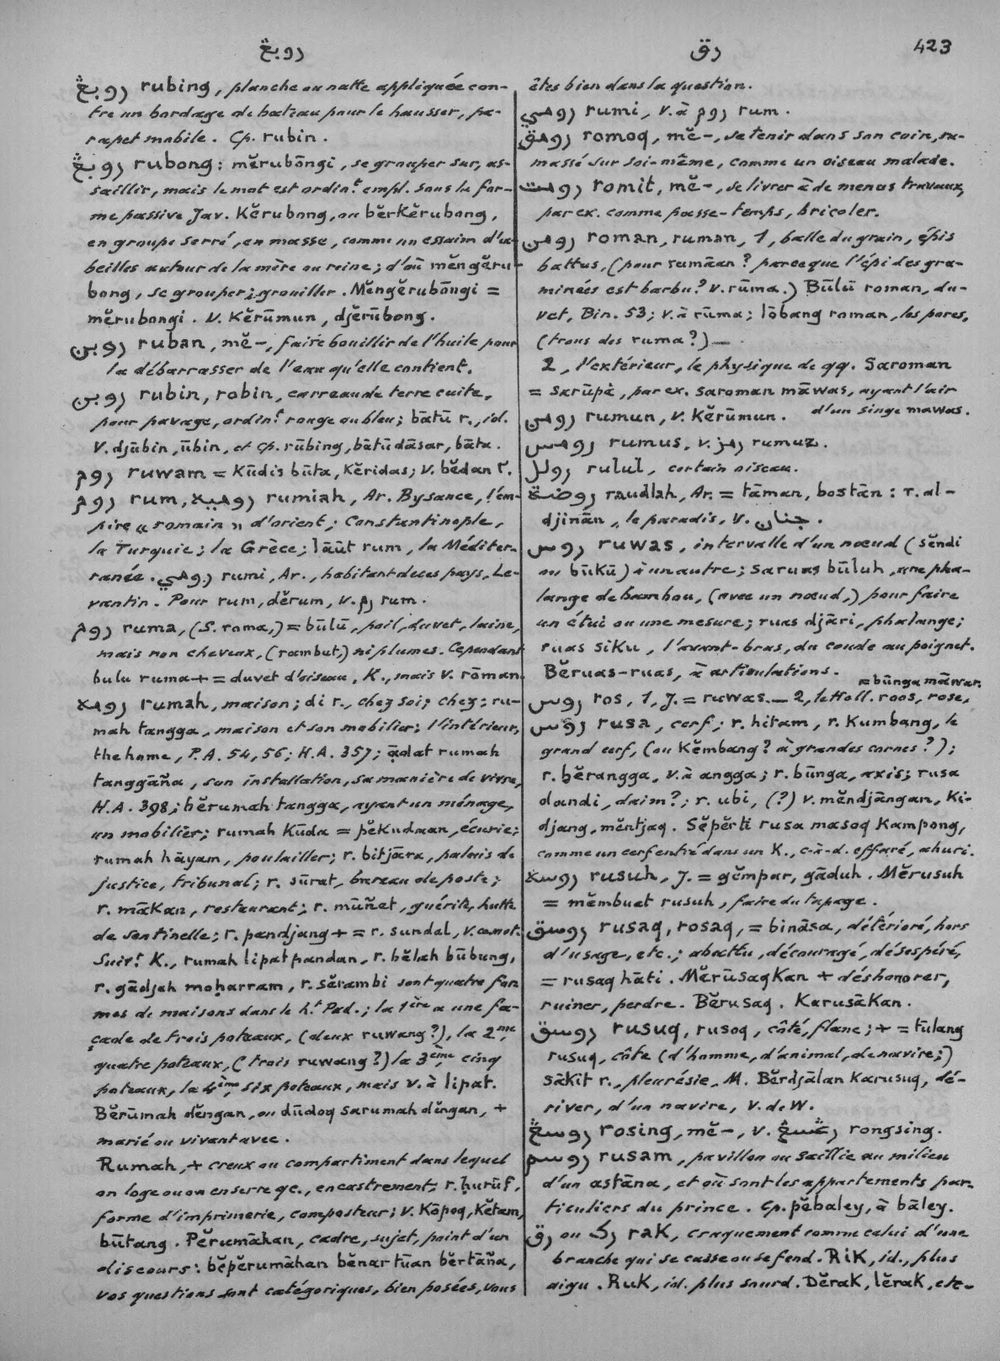 روبڠ
رق
423
روبڠ rubing, planche ou natte appliquée con-
tre un bordage de bateau pour le hausser, pa-
rapet mobile. Cp. rubin.
روبڠ rubong: mĕrubōngi, se grouper sur, as-
saillir, mais le mot est ordin.t empl. sous la for-
me passive Jav. Kĕrubong, ou bĕrKĕrubong,
en groupe serré, en masse, comme un essaim d'a-
beilles autour de la mère ou reine; d'où mĕngĕru-
bong, se grouper; grouiller. Mĕngĕrubōngi =
mĕrubongi. V. Kĕrūmun, djĕrūbong.
روبن ruban, mĕ-, faire bouillir de l'huile pour
la débarrasser de l'eau qu'elle contient.
روبن rubin, robin, carreau de terre cuite,
pour pavage, ordin.t rouge ou bleu; bātū r., id.
V. djūbin, ūbin, et cp. rūbing, bātū dāsar, bāta.
روم ruwam = Kūdis būta, Kĕridas; V. bĕdan r.
روم rum, روميه rumiah, Ar. Bysance, l'em-
pire « romain » d'orient; Constantinople,
la Turquie; la Grèce; lāūt rum, la Méditer-
ranée. رومي rumi, Ar., habitant de ces pays, Le-
vantin. Pour rum, dĕrum, v. رم rum.
روم ruma, (S. roma,) = būlū, poil, duvet, laine,
mais non cheveux, (rambut,) ni plumes. Cependant
bulu ruma + = duvet d'oiseau, K., mais V. rōman
رومه rumah, maison; di r., chez soi; chez: ru-
mah tangga, maison et son mobilier; l'intérieur,
the home, P.A. 54, 56; H.A. 357; ādat rumah
tanggāña, son installation, sa manière de vivre,
H.A. 398; bĕrumah tangga, ayant un ménage,
un mobilier; rumah Kūda = pĕKudaan, écurie;
rumah hāyam, poulailler; r. bitjāra, palais de
justice, tribunal; r. sūrat, bureau de poste;
r. māKan, restaurant; r. mūñet, guérite, hutte
de sentinelle; r. pandjang + = r. sundal, V. comot.
Suiv.t K., rumah lipat pandan, r. bĕlah būbung,
r. gādjah moḥarram, r. sĕrambi sont quatre for-
mes de maisons dans le h.t Pad.; la 1ère a une fa-
çade de trois poteaux, (deux ruwang?), la 2me
quatre poteaux, (trois ruwang?) la 3ème cinq
poteaux, la 4ème six poteaux, mais v. à lipat.
Bĕrūmah dĕngan, ou dūdoq sarumah dĕngan, +
marié ou vivant avec.
Rumah, + creux ou compartiment dans lequel
on loge ou on enserre qc., encastrement; r. ḥurūf,
forme d'imprimerie, composteur; V. Kōpoq, Kĕtam,
būtang. Pĕrumāhan, cadre, sujet, point d'un
discours: bĕpĕrumāhan bĕnar tūan bĕrtāña,
vos questions sont catégoriques, bien posées, vous
êtes bien dans la question.
رومي rumi, V. à روم rum.
رومق romoq, mĕ-, se tenir dans son coin, ra-
massé sur soi-même, comme un oiseau malade.
رومت romit, mĕ-, se livrer à de menus travaux,
par ex. comme passe-temps, bricoler.
رومن roman, ruman, 1, balle du grain, épis
battus, (pour rumāan? parce que l'épi des gra-
minées est barbu? V. rūma.) Būlū roman, du-
vet, Bin. 53; V. à rūma; lōbang roman, les pores,
(trous des ruma?)—
2, l'extérieur, le physique de qq. Saroman
= sarūpa, par ex. saroman māwas, ayant l'air
d'un singe mawas.
رومن rumun, V. Kĕrūmun.
رومس rumus, V. رمز rumuz.
رولل rulul, certain oiseau.
روضة raudlah, Ar. = tāman, bostān: r. al-
djinān, le paradis, V. جنان.
روس ruwas, intervalle d'un nœud (sĕndi
ou būkū) à un autre; saruas būluh, une pha-
lange de bambou, (avec un nœud,) pour faire
un étui ou une mesure; ruas djāri, phalange;
ruas siku, l'avant-bras, du coude au poignet.
Bĕruas-ruas, à articulations.
= būnga māwar.
روس ros, 1, J. = ruwas.— 2, le Holl. roos, rose,
روس rusa, cerf; r. hitam, r. Kumbang, le
grand cerf, (ou Kĕmbang? à grandes cornes?);
r. bĕrangga, V. à angga; r. būnga, axis; rusa
dandi, daim?; r. ubi, (?) V. mĕndjāngan, Ki-
djang, mĕntjaq. Sĕpĕrti rusa masoq Kampong,
comme un cerf entré dans un K., c-à-d. effaré, ahuri.
روسه rusuh, J. = gĕmpar, gāduh. Mĕrusuh
= mĕmbuat rusuh, faire du tapage.
روسق rusaq, rosaq, = bināsa, détérioré, hors
d'usage, etc.; abattu, découragé, désespéré,
= rusaq hāti. MĕrūsaqKan + déshonorer,
ruiner, perdre. Bĕrusaq. KarusāKan.
روسق rusuq, rusoq, côté, flanc; + = tūlang
rusuq, côte (d'homme, d'animal, de navire;)
sākit r., pleurésie, M. Bĕrdjālan Karusuq, dé-
river, d'un navire, V. de W.
روسڠ rosing, mĕ-, V. رڠسڠ rongsing.
روسم rusam, pavillon ou saillie au milieu
d'un astāna, et où sont les appartements par-
ticuliers du prince. Cp. pĕbaley, à bāley.
رق ou رک raK, craquement comme celui d'une
branche qui se casse ou se fend. RiK, id., plus
aigu. RuK, id. plus sourd. DĕraK, lĕraK, etc-